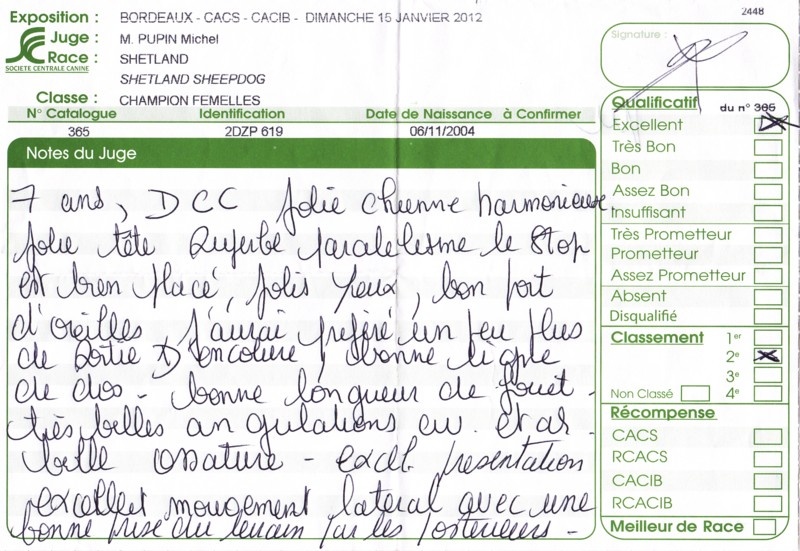 2448
Exposition : BORDEAUX - CACS - CACIB - DIMANCHE 15 JANVIER 2012
Juge : M. PUPIN Michel
Race : SHETLAND
SOCIETE CENTRALE CANINE
SHETLAND SHEEPDOG
Classe : CHAMPION FEMELLES
N° Catalogue Identification Date de Naissance à Confirmer
365 2DZP 619 06/11/2004
Notes du Juge
7 ans, DCC jolie chienne harmonieuse,
jolie tête superbe paralelesme le Stop
est bien placé, jolis yeux, bon port
d'oreilles j'aurai préféré un peu plus
de sortie D'encolure, bonne ligne
de dos - bonne longueur de fouet -
très belles angulations av et ar -
belle ossature - excelt presentation
excellent mouvement lateral avec une
bonne prise du terrain par les postérieurs -
Signature :
Qualificatif du n° 365
Excellent
Très Bon
Bon
Assez Bon
Insuffisant
Très Prometteur
Prometteur
Assez Prometteur
Absent
Disqualifié
Classement 1er
2e
3e
Non Classé 4e
Récompense
CACS
RCACS
CACIB
RCACIB
Meilleur de Race